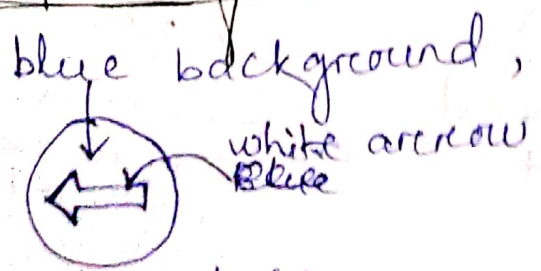 blue background,
white arrow
Blue